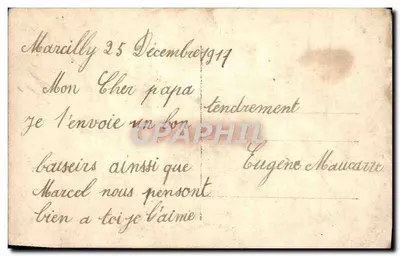 Marcilly 25 Décembre 1917
Mon Cher papa
je t'envoie un bon
baiseirs ainssi que
Marcel nous pensont
bien a toi je t'aime
tendrement
Eugène Maucarré
CPAPHIL